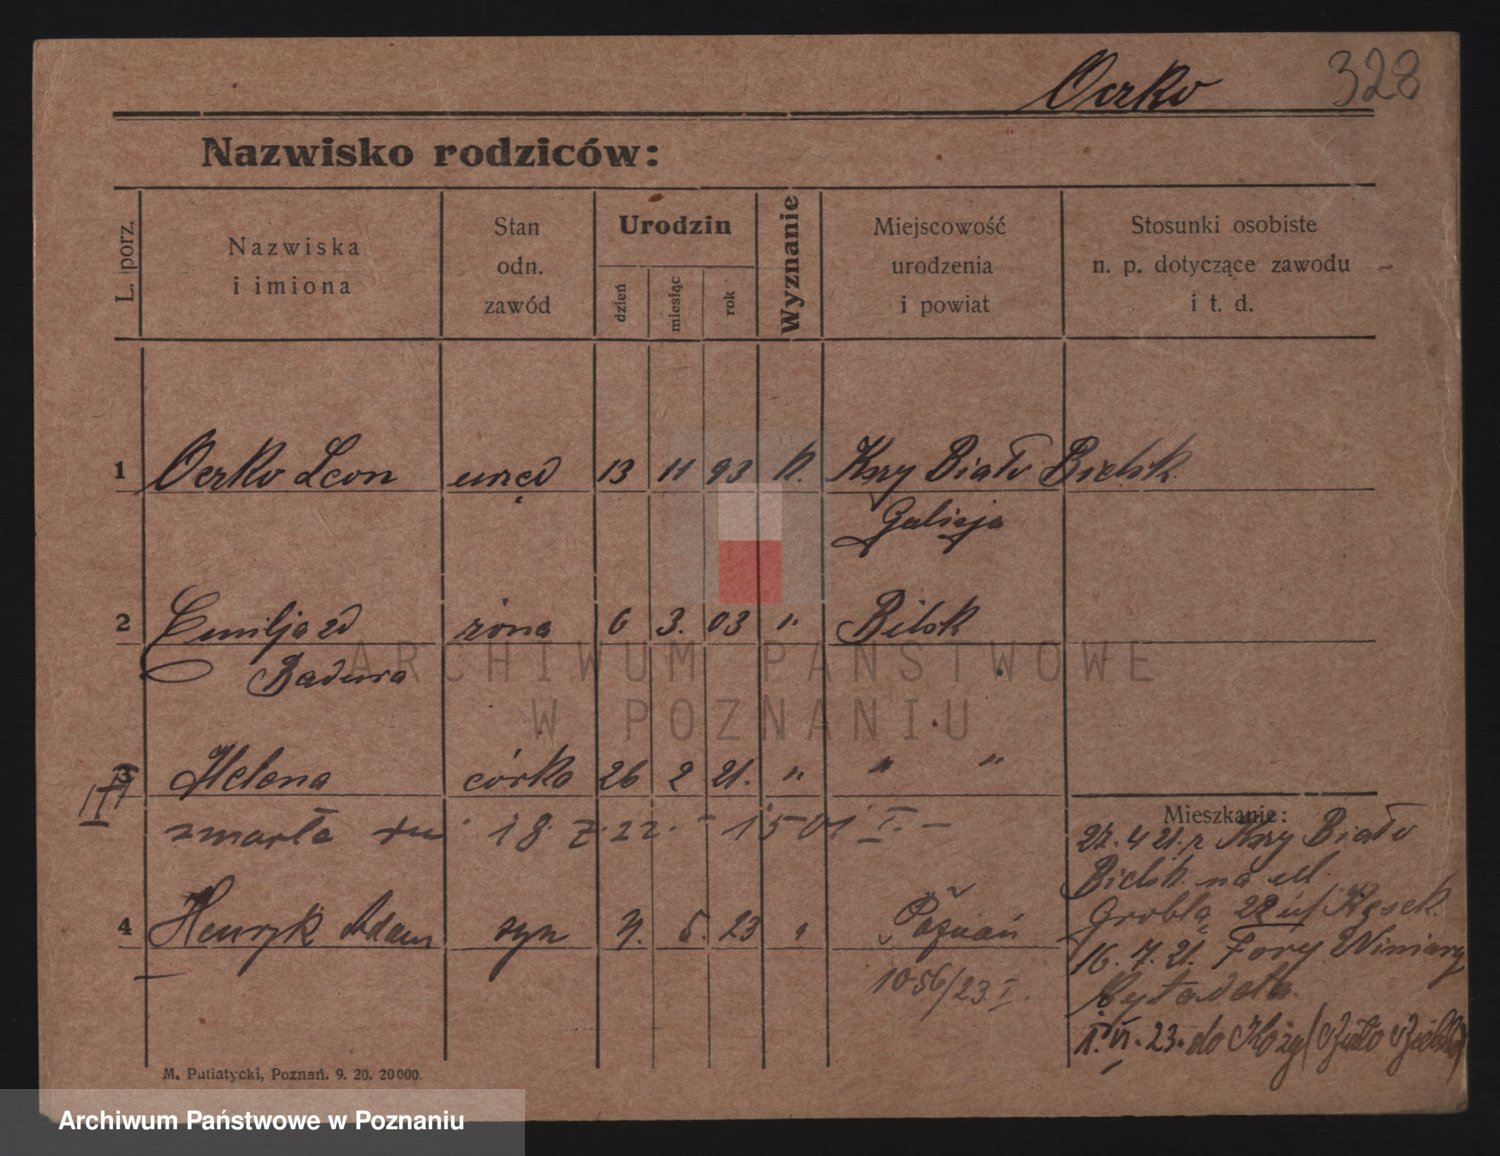 Oczko 328
Nazwisko rodziców:
L. porz.
Nazwiska
i imiona
Stan
odn.
zawód
Urodzin
dzień
miesiąc
rok
Wyznanie
Miejscowość
urodzenia
i powiat
Stosunki osobiste
n. p. dotyczące zawodu
i t. d.
1 Oczko Leon urzęd 13 11 93 K. Biało Bielsk
Galicja
2 Emilja zd żona 6 3. 03 " Bilsk
Badura
3 Helena córka 26 2 21. " " "
zmarła dn. 18. 7. 22. - 1501 I. -
Mieszkanie:
27. 4 21. z Biało
Bielsk. na ul.
4 Henryk Adam syn 5. 23 " Poznań
Groblą 22
16. 7. 21. Fory Winiary
1056/23 I.
Cytadela
23. do
M. Putiatycki, Poznań. 9. 20. 20000.
ARCHIWUM PAŃSTWOWE
W POZNANIU
Archiwum Państwowe w Poznaniu